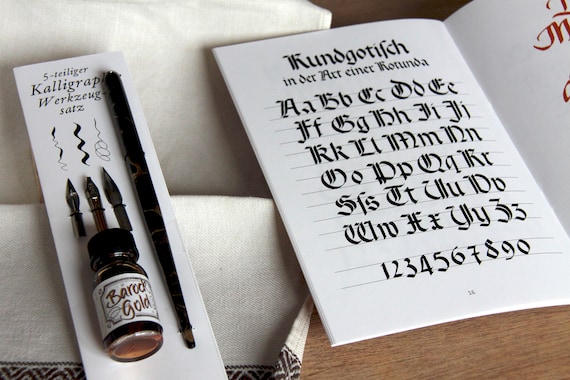 5-teiliger
Kalligraph
Werkzeug-
satz
Barock
Gold
Rundgotisch
in der Art einer Rotunda
Aa Bb Cc Dd Ee
Ff Gg Hh Ii Jj
Kk Ll Mm Nn
Oo Pp Qq Rr
Sſs Tt Uu Vv
Ww Xx Yy Zz
1234567890